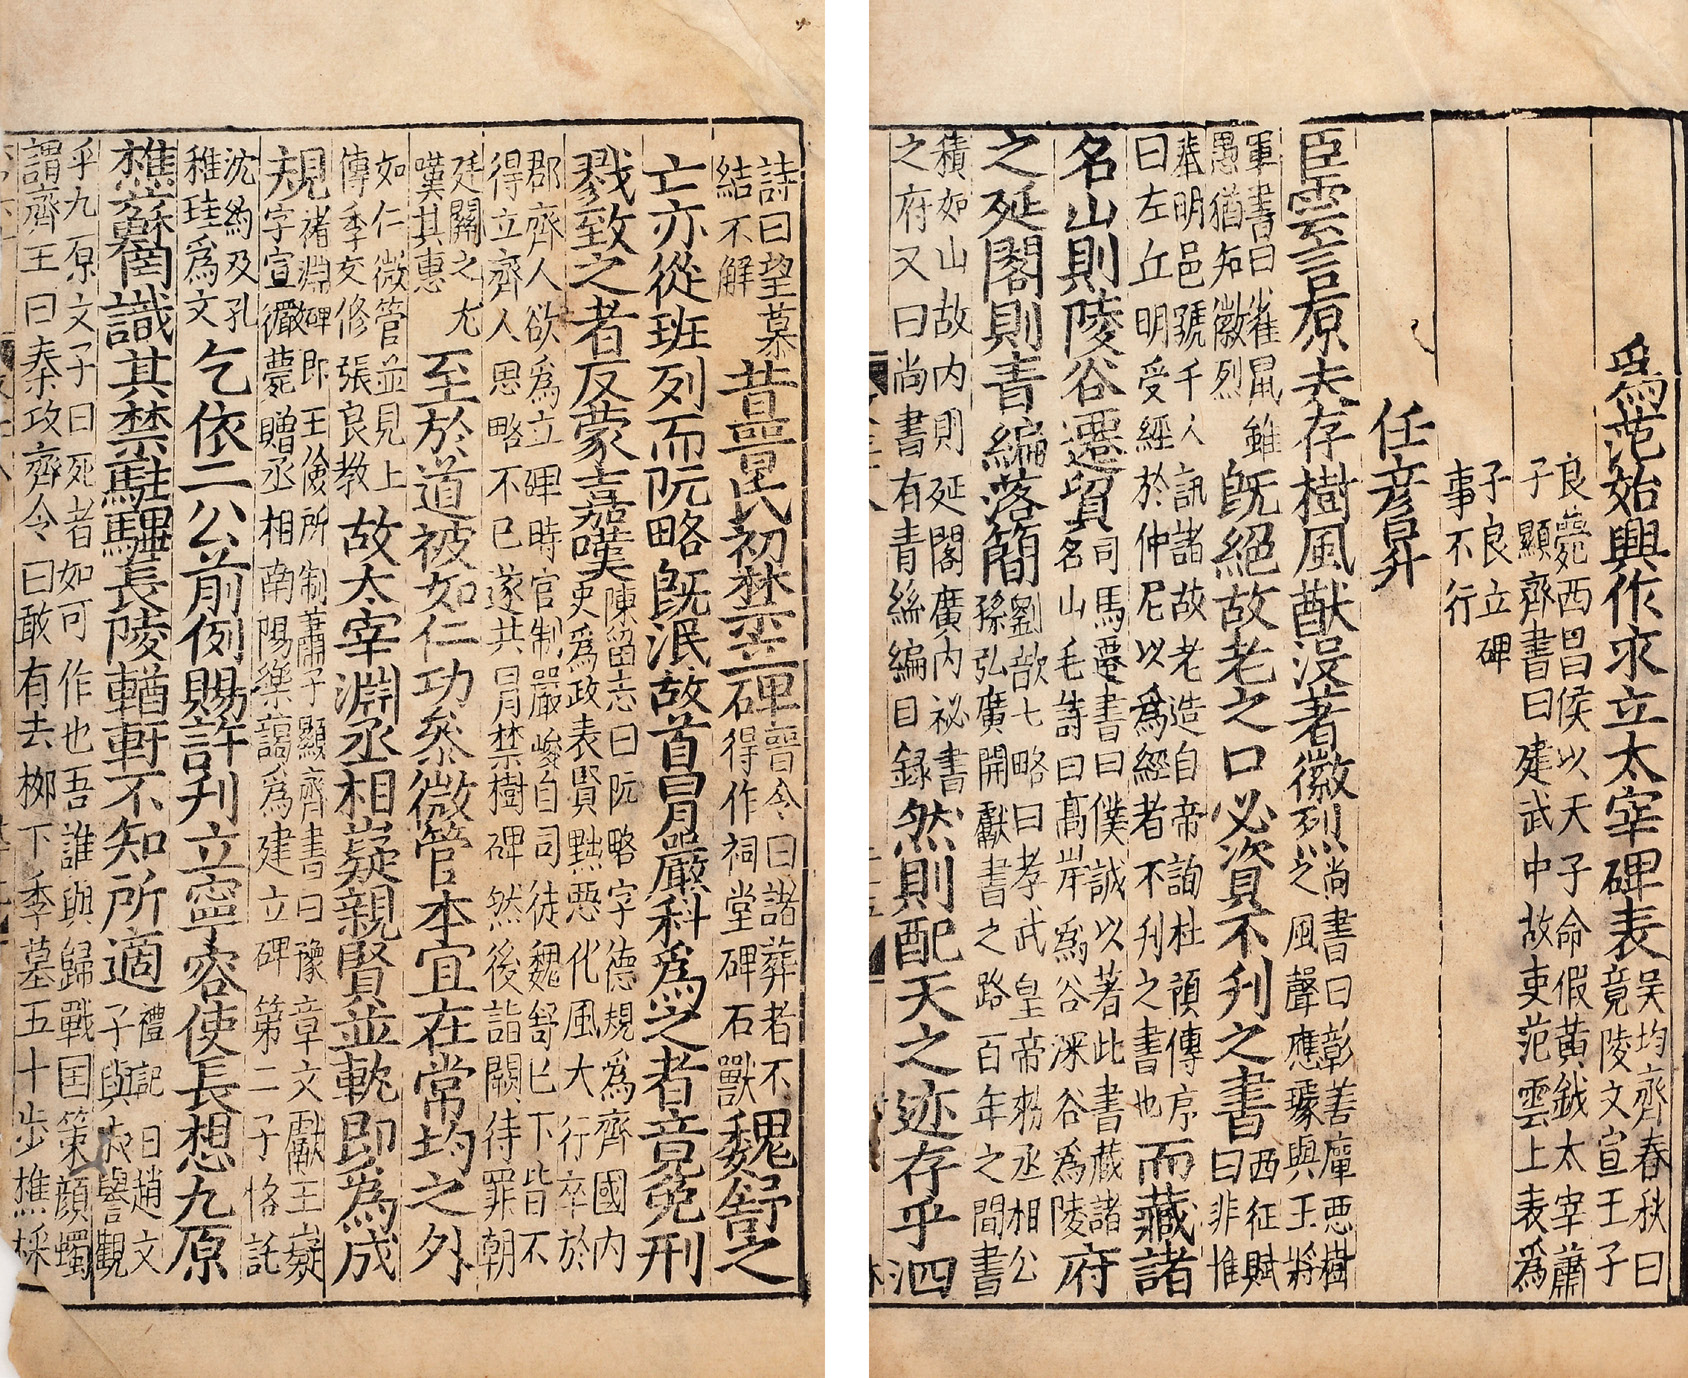 爲范始興作求立太宰碑表吳均齊春秋曰竟陵文宣王子
良薨西昌侯以天子命假黃鉞太宰蕭
子顯齊書曰建武中故吏范雲上表爲
子良立碑
事不行
任彥昇
臣雲言原夫存樹風猷沒著徽烈尚書曰彰善癉惡樹之風聲應璩與王將
軍書曰雀鼠雖愚猶知徽烈既絕故老之口必資不刋之書西征賦曰非惟
奉明邑號千人訊諸故老造自帝詢杜預傳序曰左丘明受經於仲尼以爲經者不刋之書也而藏諸
名山則陵谷遷貿司馬遷書曰僕誠以著此書藏諸名山毛詩曰高岸爲谷深谷爲陵府
之延閣則青編落簡劉歆七略曰孝武皇帝勑丞相公孫弘廣開獻書之路百年之間書
積如山故内則延閣廣内祕書之府又曰尚書有青絲編目録然則配天之迹存乎泗
詩曰望慕結不解昔晉氏初禁立碑晉令曰諸葬者不得作祠堂碑石獸魏舒之
亡亦從班列而阮略既泯故首冒嚴科爲之者竟免刑
戮致之者反蒙嘉嘆陳留志曰阮略字德規爲齊國内吏爲政表賢黜惡化風大行卒於
郡齊人欲爲立碑時官制嚴峻自司徒魏舒已下皆不
得立齊人思略不已遂共冒禁樹碑然後詣闕待罪朝
廷聞之尤嘆其惠至於道被如仁功參微管本宜在常均之外
如仁微管並見上傳季友修張良教故太宰淵丞相嶷親賢並軌即爲成
規褚淵碑即王儉所制蕭子顯齊書曰豫章文獻王嶷字宣儼薨贈丞相南陽樂藹爲建立碑第二子恪託
沈約及孔稚珪爲文乞依二公前例賜許刋立寧容使長想九原
樵蘇罔識其禁駐驆長陵輶軒不知所適禮記曰趙文子與叔譽觀
乎九原文子曰死者如可作也吾誰與歸戰国策顔斶
謂齊王曰秦攻齊令曰敢有去柳下季墓五十步樵採